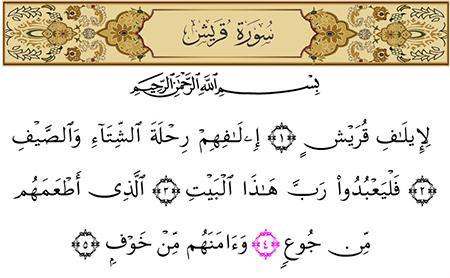 سُورَةُ قُرَيْشٍ
بِسْمِ اللَّهِ الرَّحْمَٰنِ الرَّحِيمِ
لِإِيلَٰفِ قُرَيْشٍ ﴿١﴾ إِۦلَٰفِهِمْ رِحْلَةَ الشِّتَآءِ وَالصَّيْفِ
﴿٢﴾ فَلْيَعْبُدُوا۟ رَبَّ هَٰذَا الْبَيْتِ ﴿٣﴾ الَّذِىٓ أَطْعَمَهُم
مِّن جُوعٍ ﴿٤﴾ وَءَامَنَهُم مِّنْ خَوْفٍۭ ﴿٥﴾